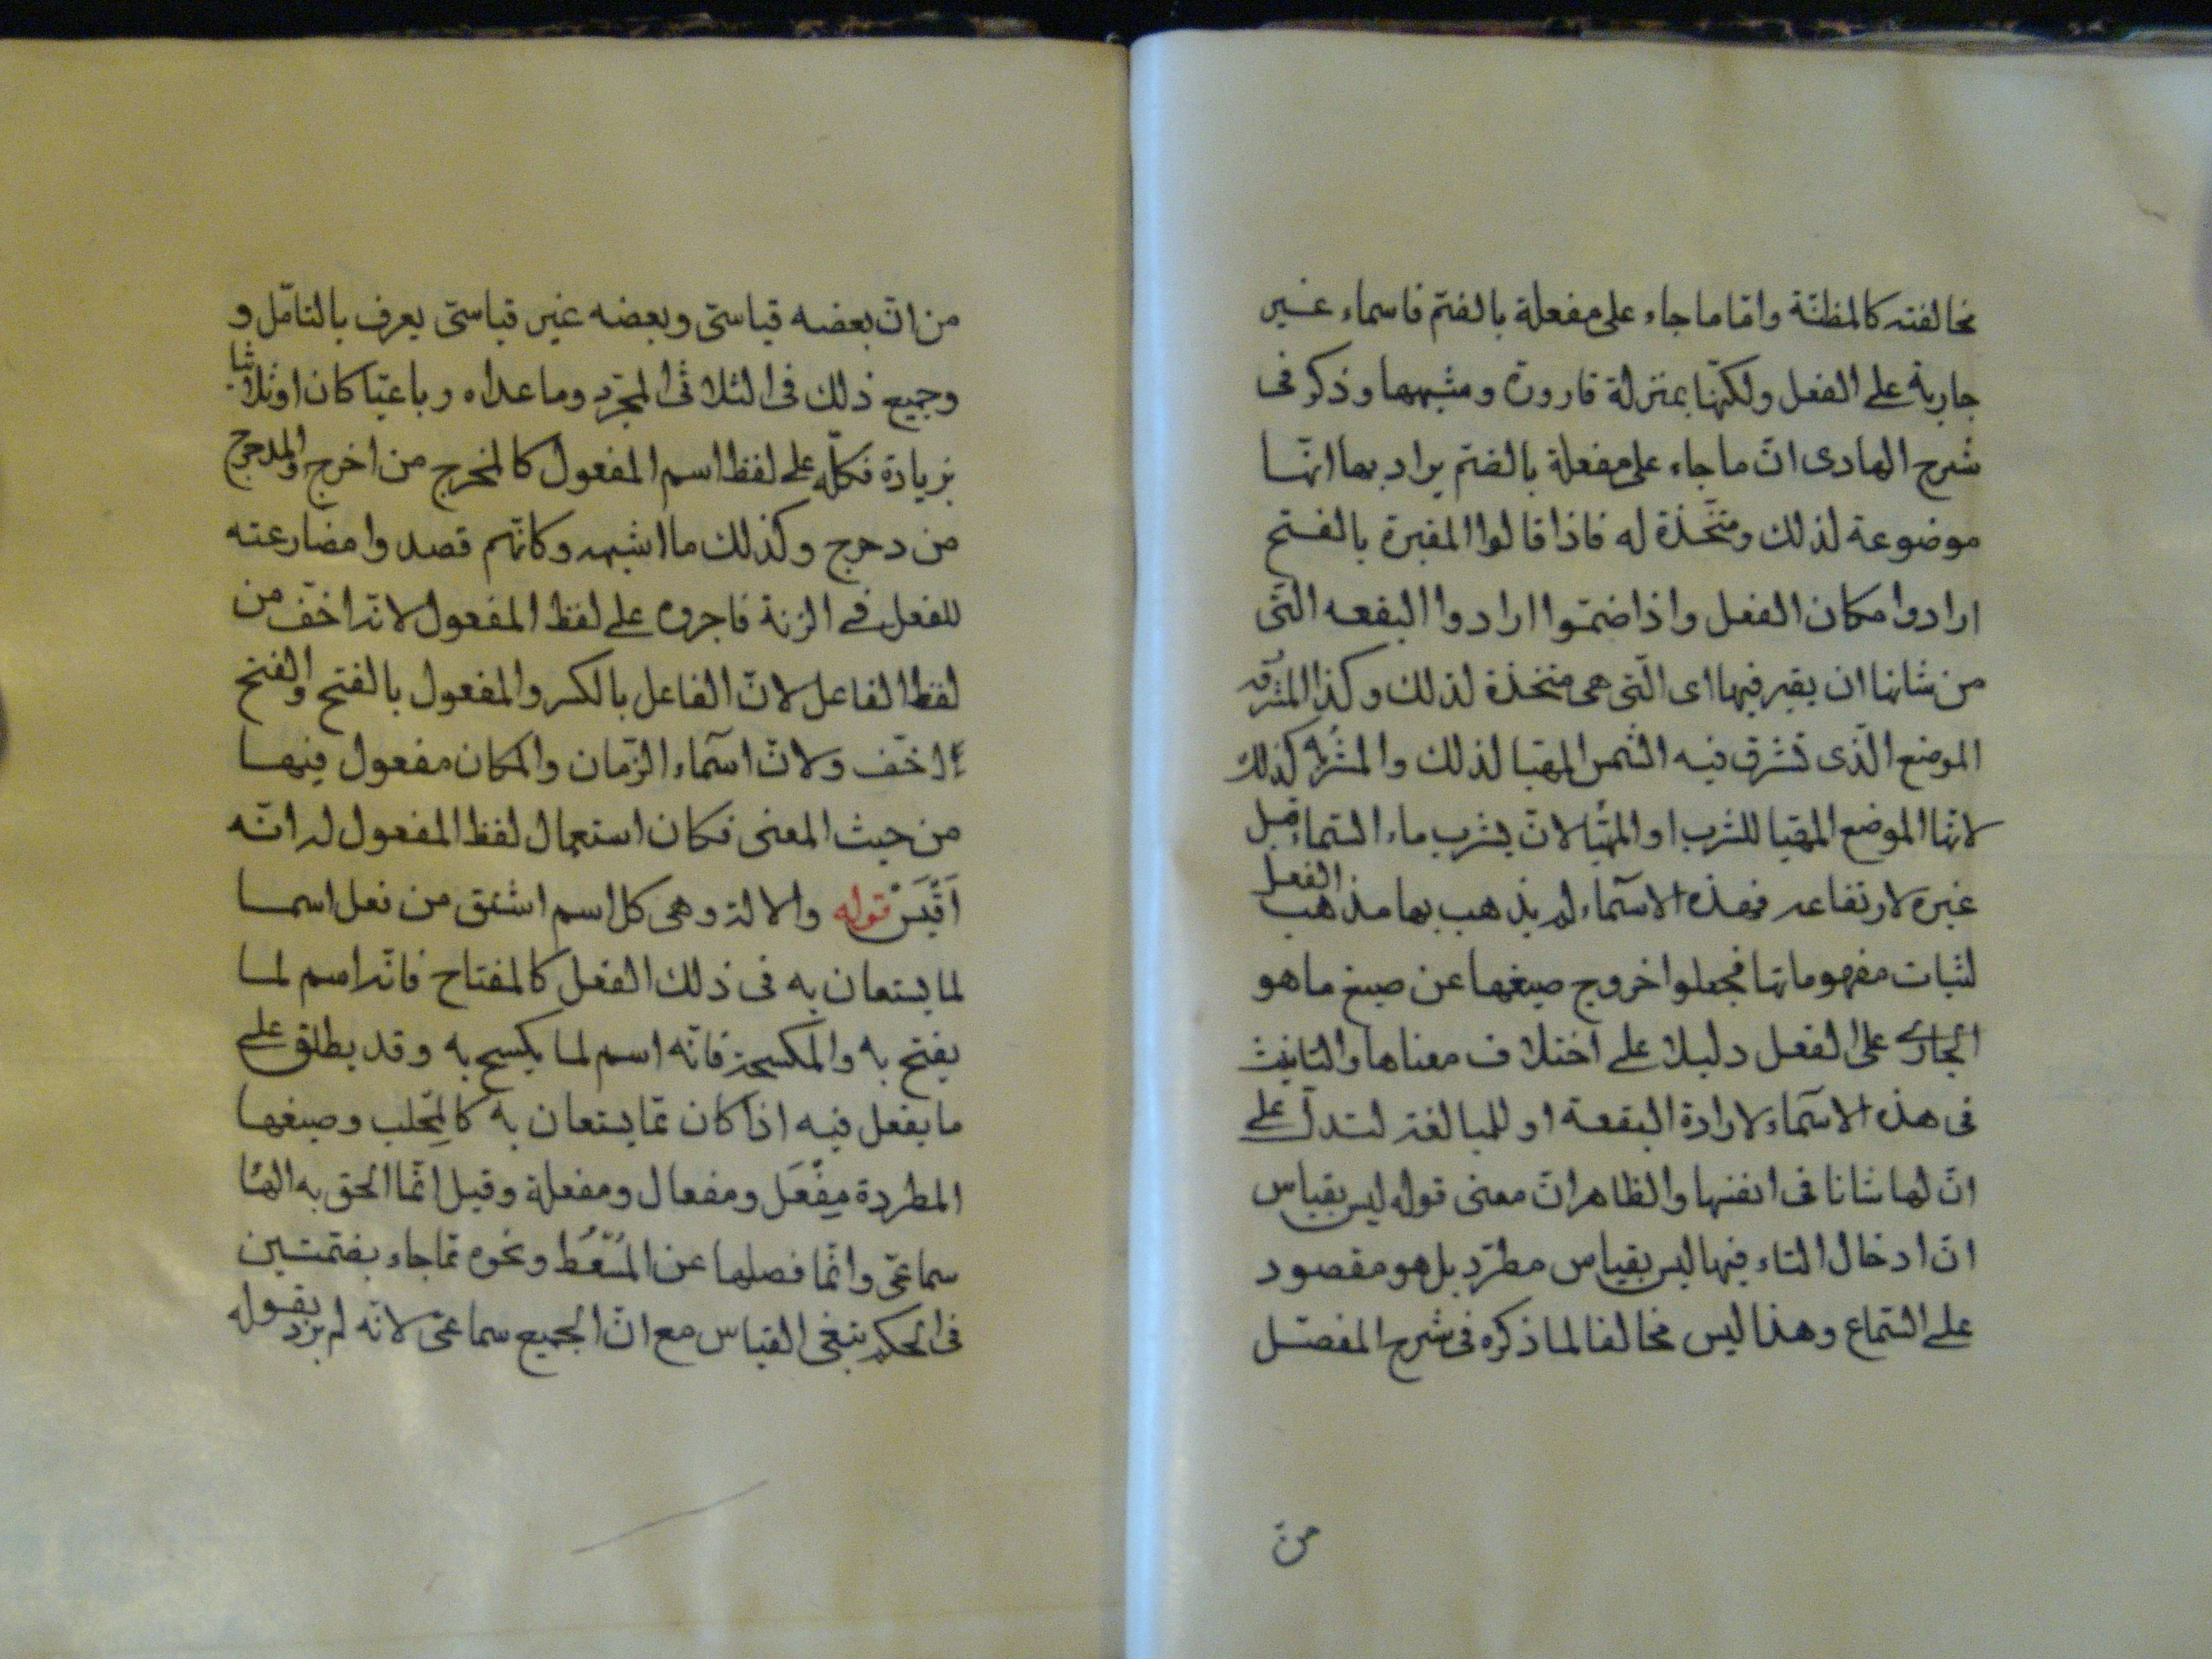 مخالفته كالمظنّة وامّا ما جاء على مفعلة بالضّم فاسماء غير
جارية على الفعل ولكنّها بمنزلة قارورة ومشبهها وذكر فى
شرح الهادى انّ ما جاء على مفعلة بالضّم يراد بها انّها
موضوعة لذلك ومتّخذة له فاذا قالوا المقبرة بالفتح
ارادوا مكان الفعل واذا ضمّوا ارادوا البقعه الّتى
من شانها ان يقبر فيها اى الّتى هى متخذة لذلك وكذا المشرُقه
الموضع الّذى تشرق فيه الشمس المهيّا لذلك والمشرُبه كذلك
لانّها الموضع المهيّا للشرب او المهيّا لانّ يشرب ماء السّماء قبل
غيره لارتفاعه فهذه الاسّماء لم يذهب بها مذهب الفعل
لثبات مفهوماتها فجعلوا خروج صيغها عن صيغ ما هو
الجارى على الفعل دليلا على اختلاف معناها والتانيث
فى هذه الاسّماء لارادة البقعة او للمبالغة لتدلّ على
انّ لها شانا فى انفسها والظاهر انّ معنى قوله ليس بقياس
انّ ادخال التاء فيها ليس بقياس مطّرد بل هو مقصود
على السّماع وهذا ليس مخالفا لما ذكره فى شرح المفصّل
من
من انّ بعضه قياسىّ وبعضه غير قياسىّ يعرف بالتامّل و
وجميع ذلك فى الثلاثى المجرّد وما عداه رباعيّا كان او ثلاثيا
بزيادة فكلّه على لفظ اسم المفعول كالمخرج من اخرج والمدحرج
من دحرج وكذلك ما اشبهه وكانّهم قصدوا مضارعته
للفعل فى الزنة فاجروه على لفظ المفعول لانّه اخفّ من
لفظ الفاعل لانّ الفاعل بالكسر والمفعول بالفتح والفتح
اخفّ ولانّ اسّماء الزّمان والمكان مفعول فيها
من حيث المعنى فكان استعمال لفظ المفعول له انّه
اَقْيَسُ قوله والالة وهى كل اسم اشتق من فعل اسما
لما يستعان به فى ذلك الفعل كالمفتاح فانّه اسم لما
يفتح به والمكسحة فانّه اسم لما يكسح به وقد يطلق على
ما يفعل فيه اذا كان ممّا يستعان به كالمِحلب وصيغها
المطردة مِفْعَل ومفعال ومفعلة وقيل انّما الحق به الها
سماعىّ وانّما فصلها عن المُسْعُط ونحوه ممّا جاء بضمّتين
فى الحكم بنفى القياس مع انّ الجميع سماعىّ لانّه لم يرد بقوله